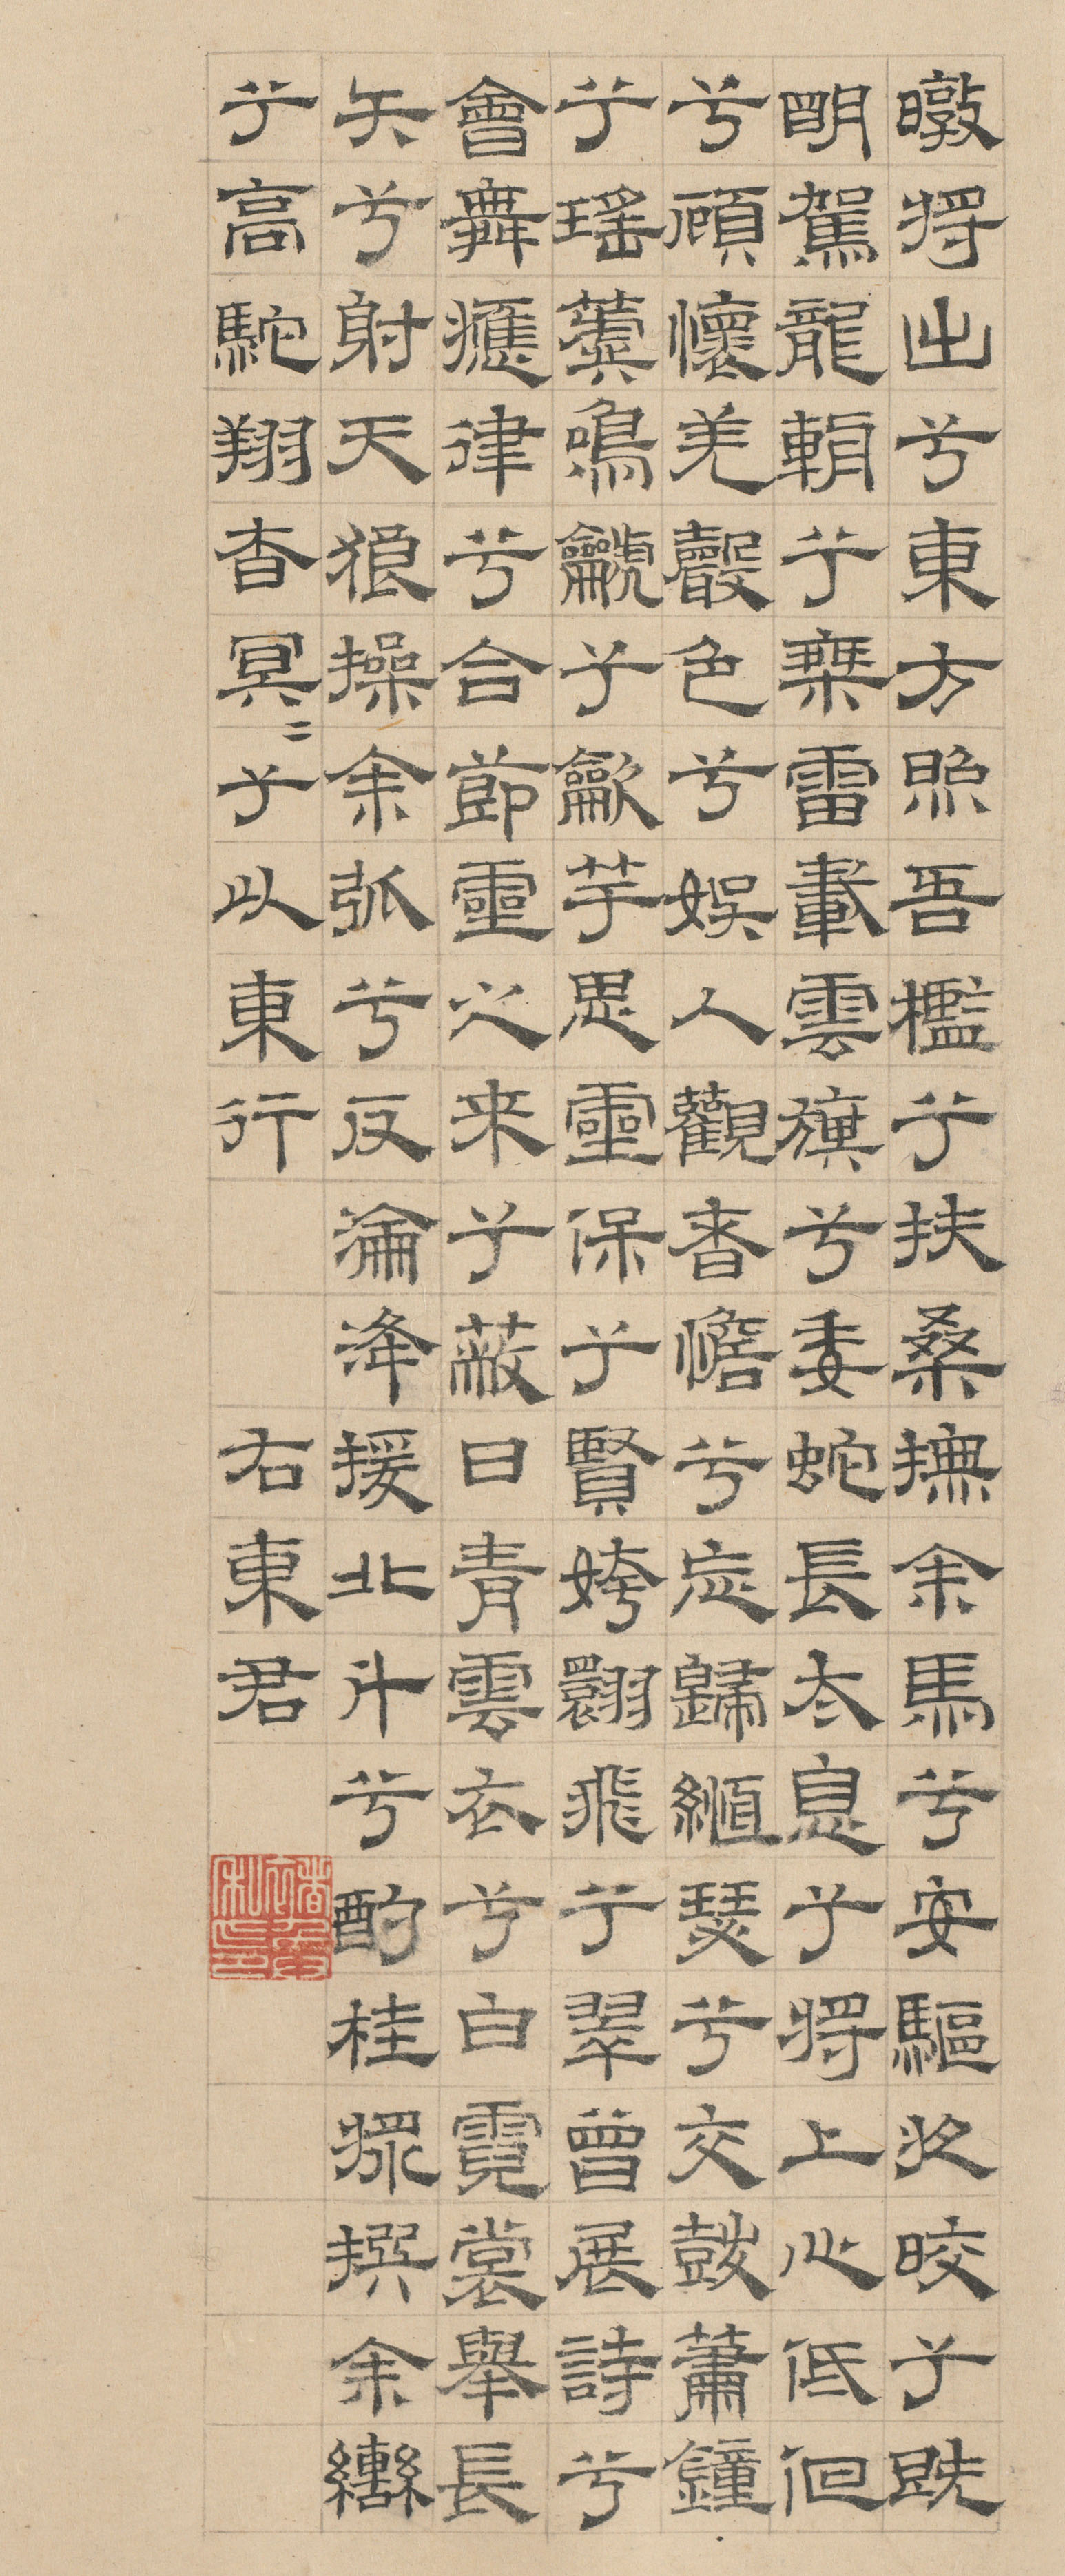 暾将出兮東方照吾檻兮扶桑撫余馬兮安驅夜晈兮既
明駕龍輈兮乘雷載雲旗兮委蛇長太息兮将上心低佪
兮顧懷羌聲色兮娛人觀者憺兮忘歸緪瑟兮交鼓簫鐘
兮瑤簴鳴鷈兮龡竽思靈保兮賢姱翾飛兮翠曾展詩兮
會舞應律兮合節靈之来兮蔽日青雲衣兮白霓裳舉長
矢兮射天狼操余弧兮反淪降援北斗兮酌桂漿撰余轡
兮高駝翔杳冥〻兮以東行 右東君